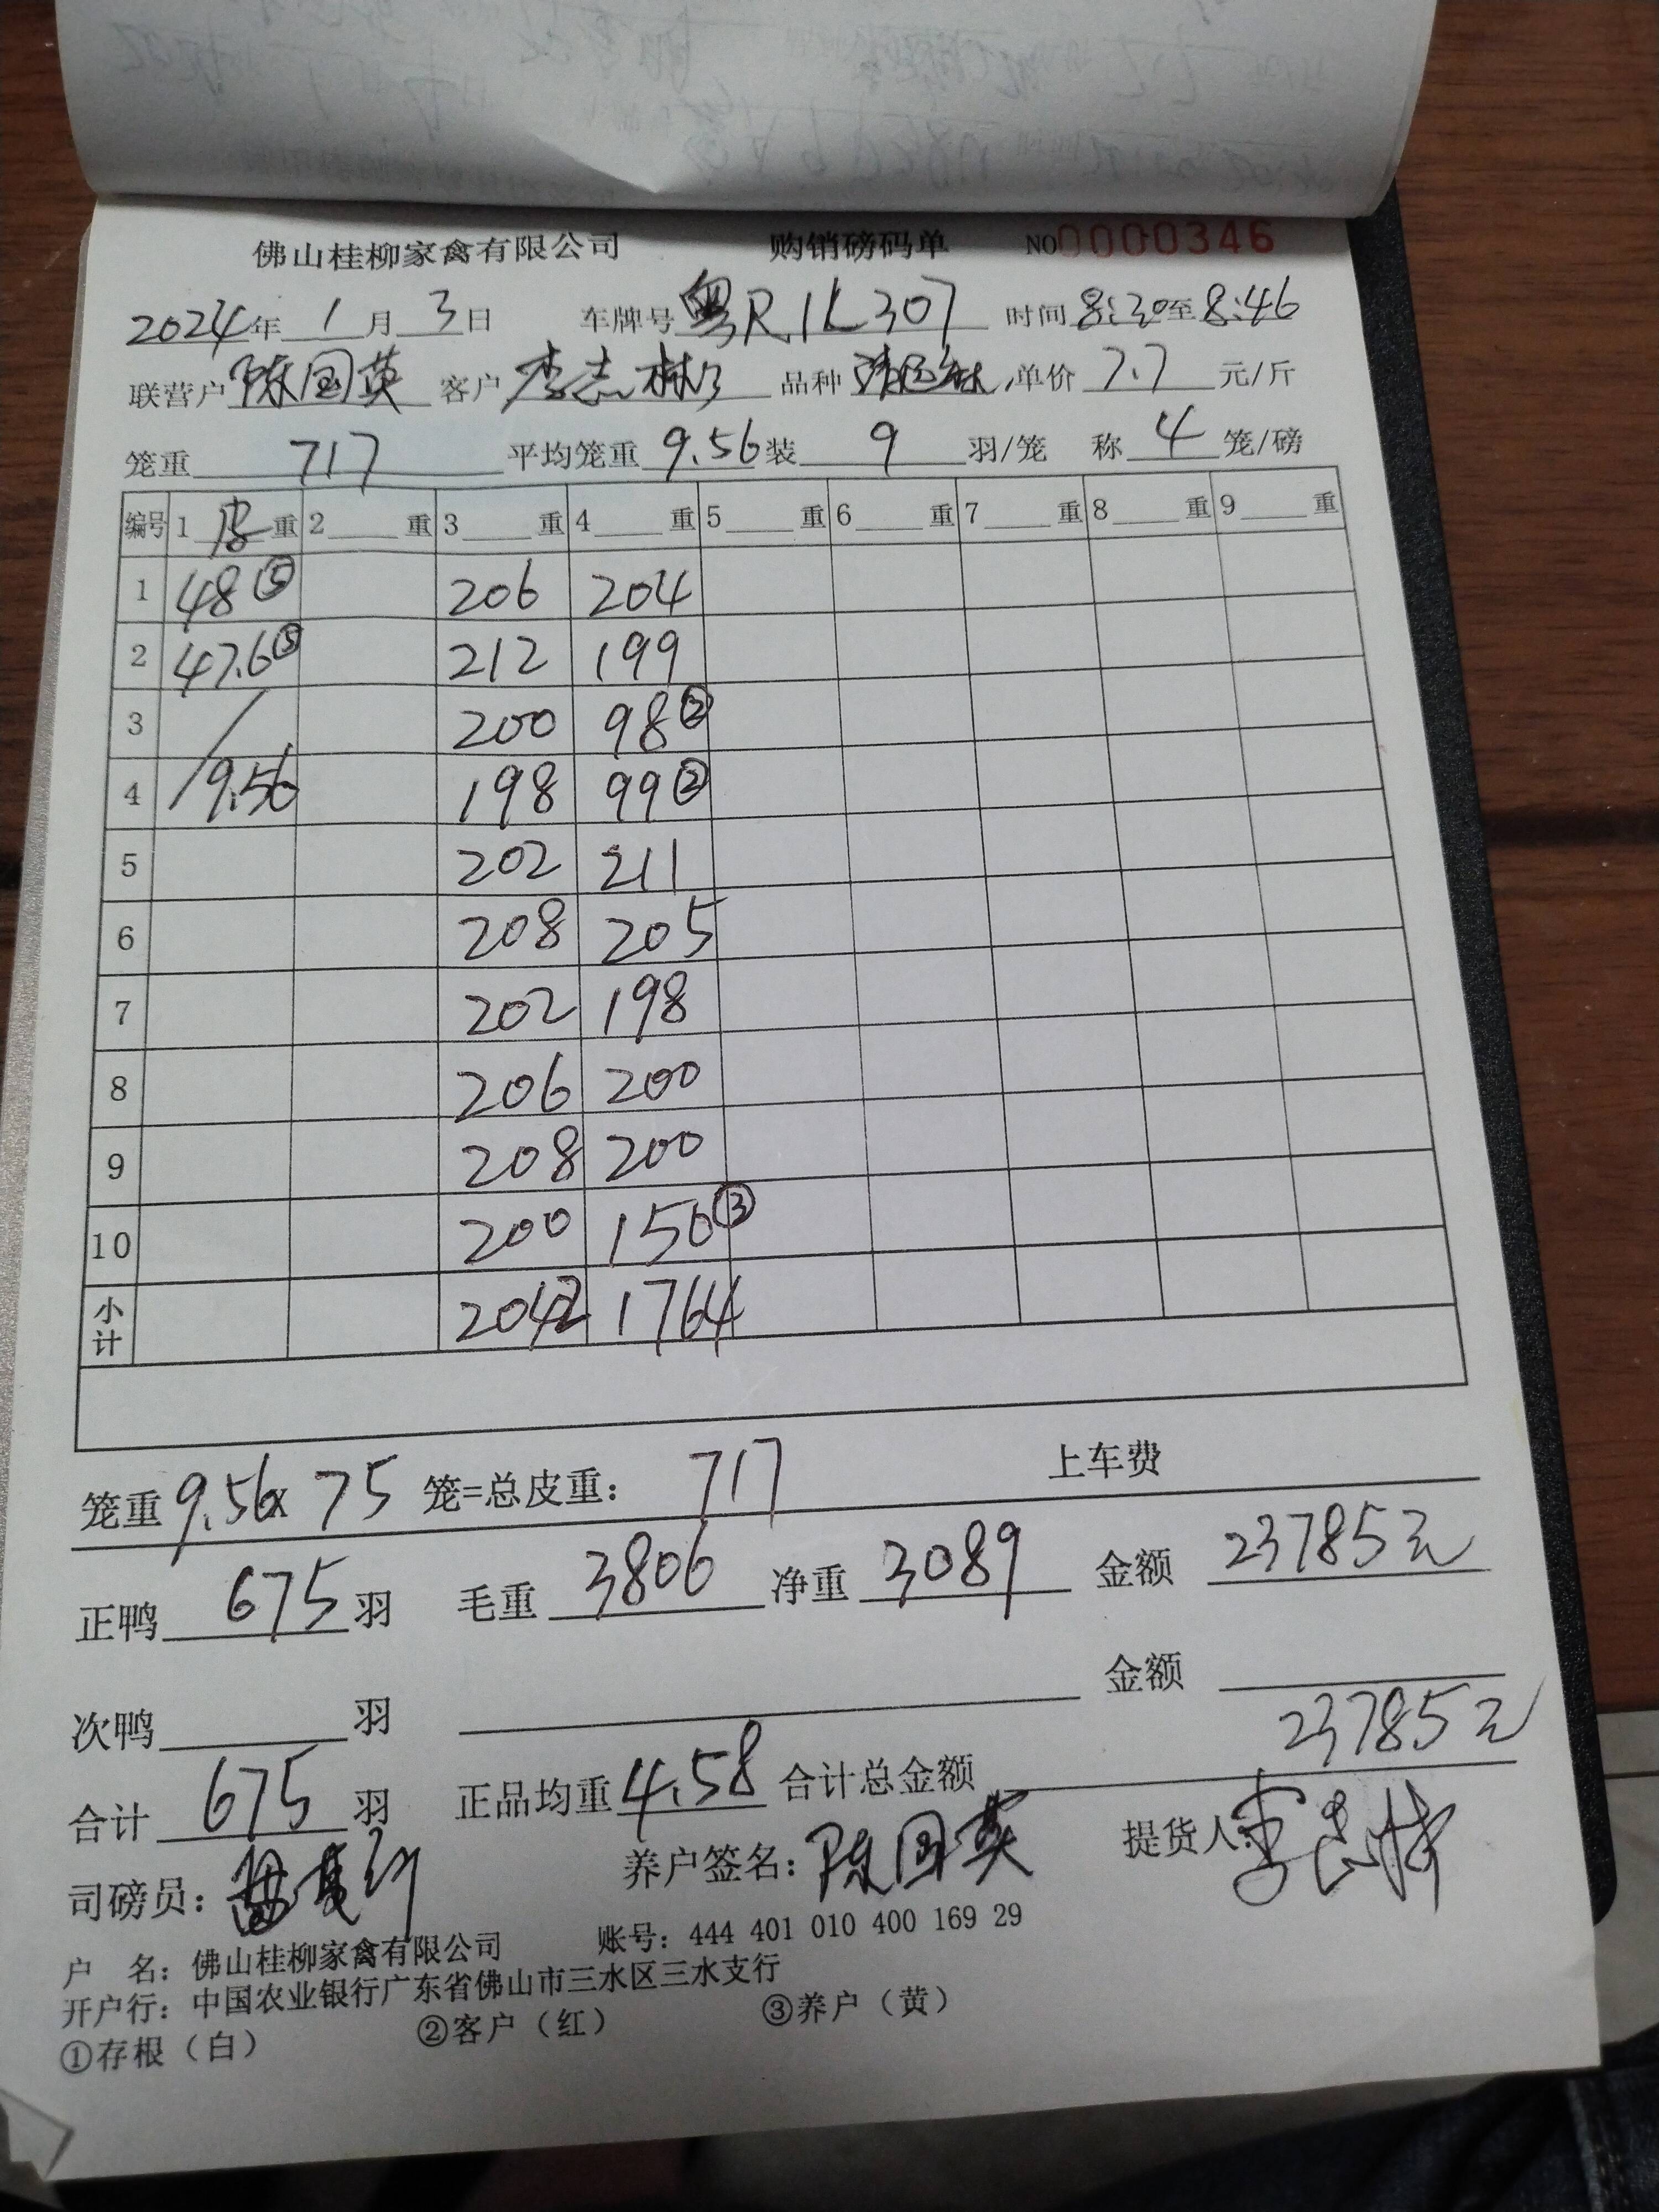 佛山桂柳家禽有限公司 购销磅码单 NO0000346
2024年 1 月 3 日 车牌号 粤R1L307 时间 8:30 至 8:46
联营户 陈国英 客户 李志彬 品种 单价 7.7 元/斤
笼重 717 平均笼重 9.56 装 9 羽/笼 称 4 笼/磅
编号 1 皮 重 2 重 3 重 4 重 5 重 6 重 7 重 8 重 9 重
1 48⑤ 206 204
2 47.6⑤ 212 199
3 / 200 98②
4 9.56 198 99②
5 202 211
6 208 205
7 202 198
8 206 200
9 208 200
10 200 150③
小计 2042 1764
笼重 9.56x 75 笼=总皮重: 717 上车费
正鸭 675 羽 毛重 3806 净重 3089 金额 23785元
次鸭 羽 金额
合计 675 羽 正品均重 4.58 合计总金额 23785元
司磅员: 养户签名: 陈国英 提货人: 李志彬
户 名: 佛山桂柳家禽有限公司 账号: 444 401 010 400 169 29
开户行: 中国农业银行广东省佛山市三水区三水支行
①存根（白） ②客户（红） ③养户（黄）